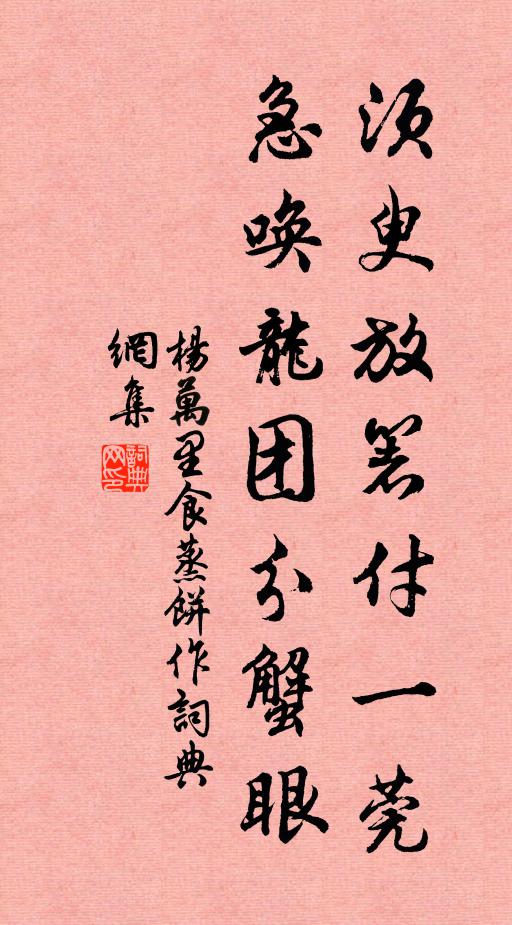 須叟放箸付一莞
急唤龍团分蟹眼
楊萬里食蒸餅作詞典
網集
詞典网印